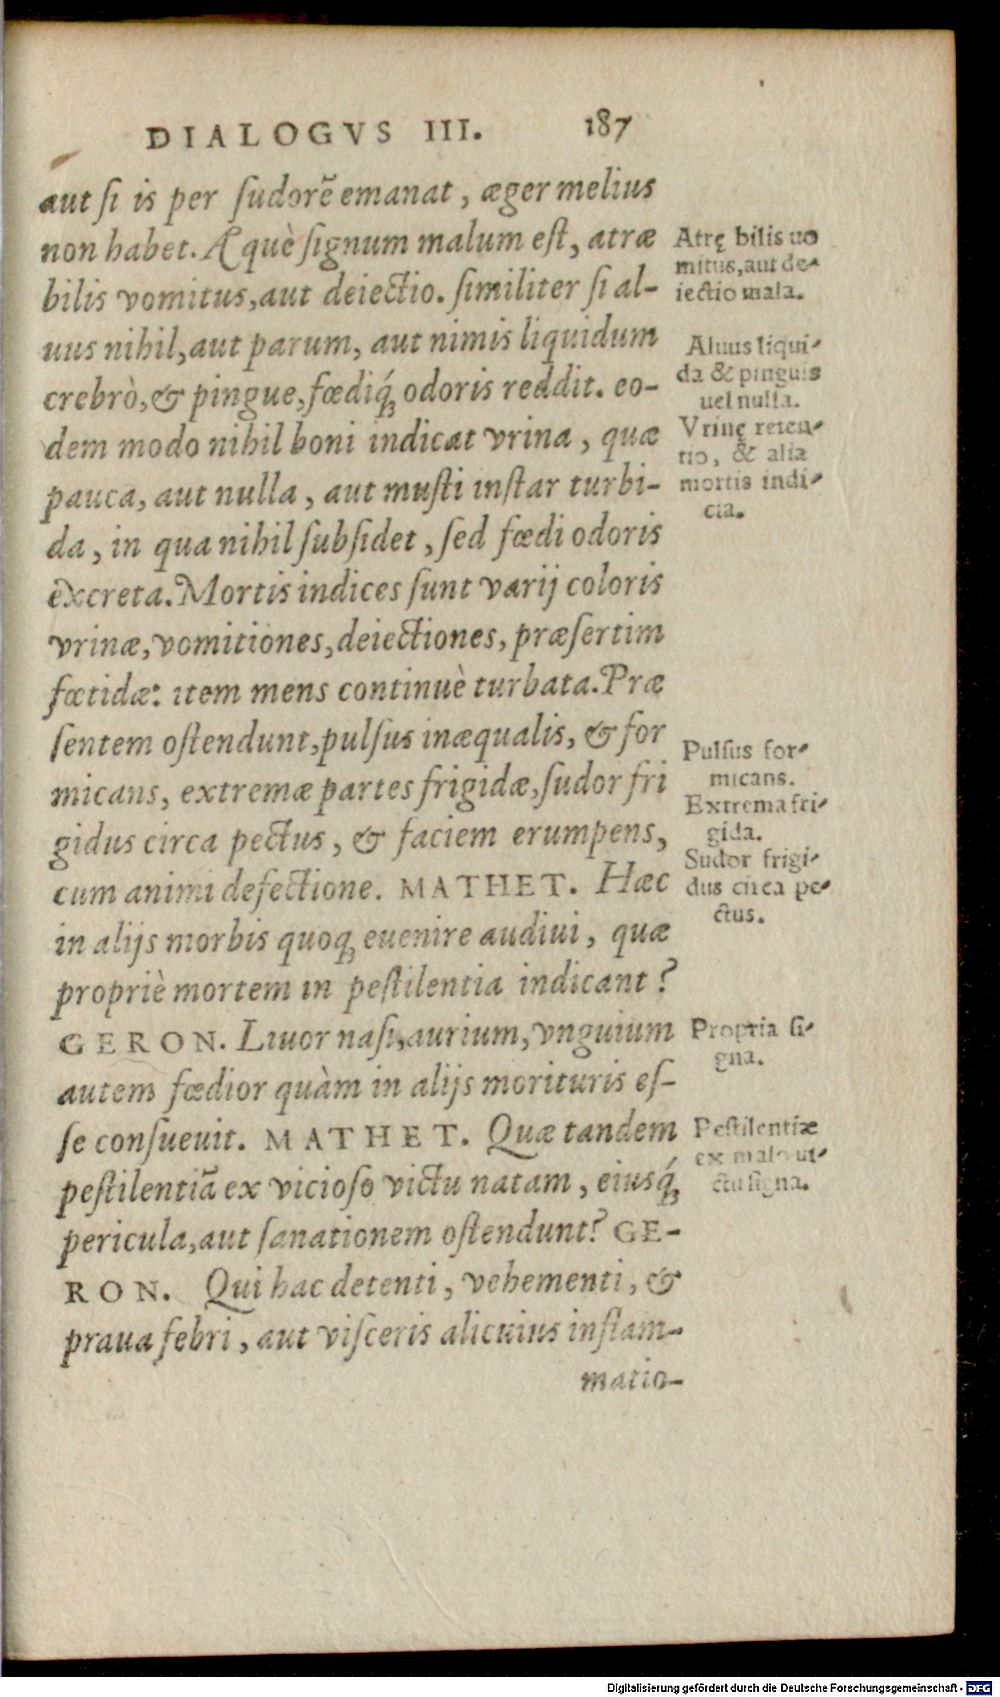 DIALOGVS III. 187
aut ſi is per ſudorē emanat, æger melius
non habet. Æquè ſignum malum eſt, atræ
bilis vomitus, aut deiectio. ſimiliter ſi al-
uus nihil, aut parum, aut nimis liquidum
crebrò, & pingue, fœdiq́; odoris reddit. eo-
dem modo nihil boni indicat vrina, quæ
pauca, aut nulla, aut muſti inſtar turbi-
da, in qua nihil ſubſidet, ſed fœdi odoris
excreta. Mortis indices ſunt varij coloris
vrinæ, vomitiones, deiectiones, præſertim
fœtidæ: item mens continuè turbata. Præ
ſentem oſtendunt, pulſus inæqualis, & for
micans, extremæ partes frigidæ, ſudor fri
gidus circa pectus, & faciem erumpens,
cum animi defectione. MATHET. Hæc
in alijs morbis quoq; euenire audiui, quæ
propriè mortem in peſtilentia indicant?
GERON. Liuor naſi, aurium, vnguium
autem fœdior quàm in alijs morituris eſ-
ſe conſueuit. MATHET. Quæ tandem
peſtilentiā ex vicioſo victu natam, eiusq́;
pericula, aut ſanationem oſtendunt? GE-
RON. Qui hac detenti, vehementi, &
praua febri, aut viſceris alicuius inflam-
matio-
Atrę bilis uo
mitus, aut de-
iectio mala.
Aluus liqui-
da & pinguis
uel nulla.
Vrinę reten-
tio, & alia
mortis indi-
cia.
Pulſus for-
micans.
Extrema fri-
gida.
Sudor frigi-
dus circa pe-
ctus.
Propria ſi-
gna.
Peſtilentiæ
ex malo ui-
ctu ſigna.
Digitalisierung gefördert durch die Deutsche Forschungsgemeinschaft - DFG